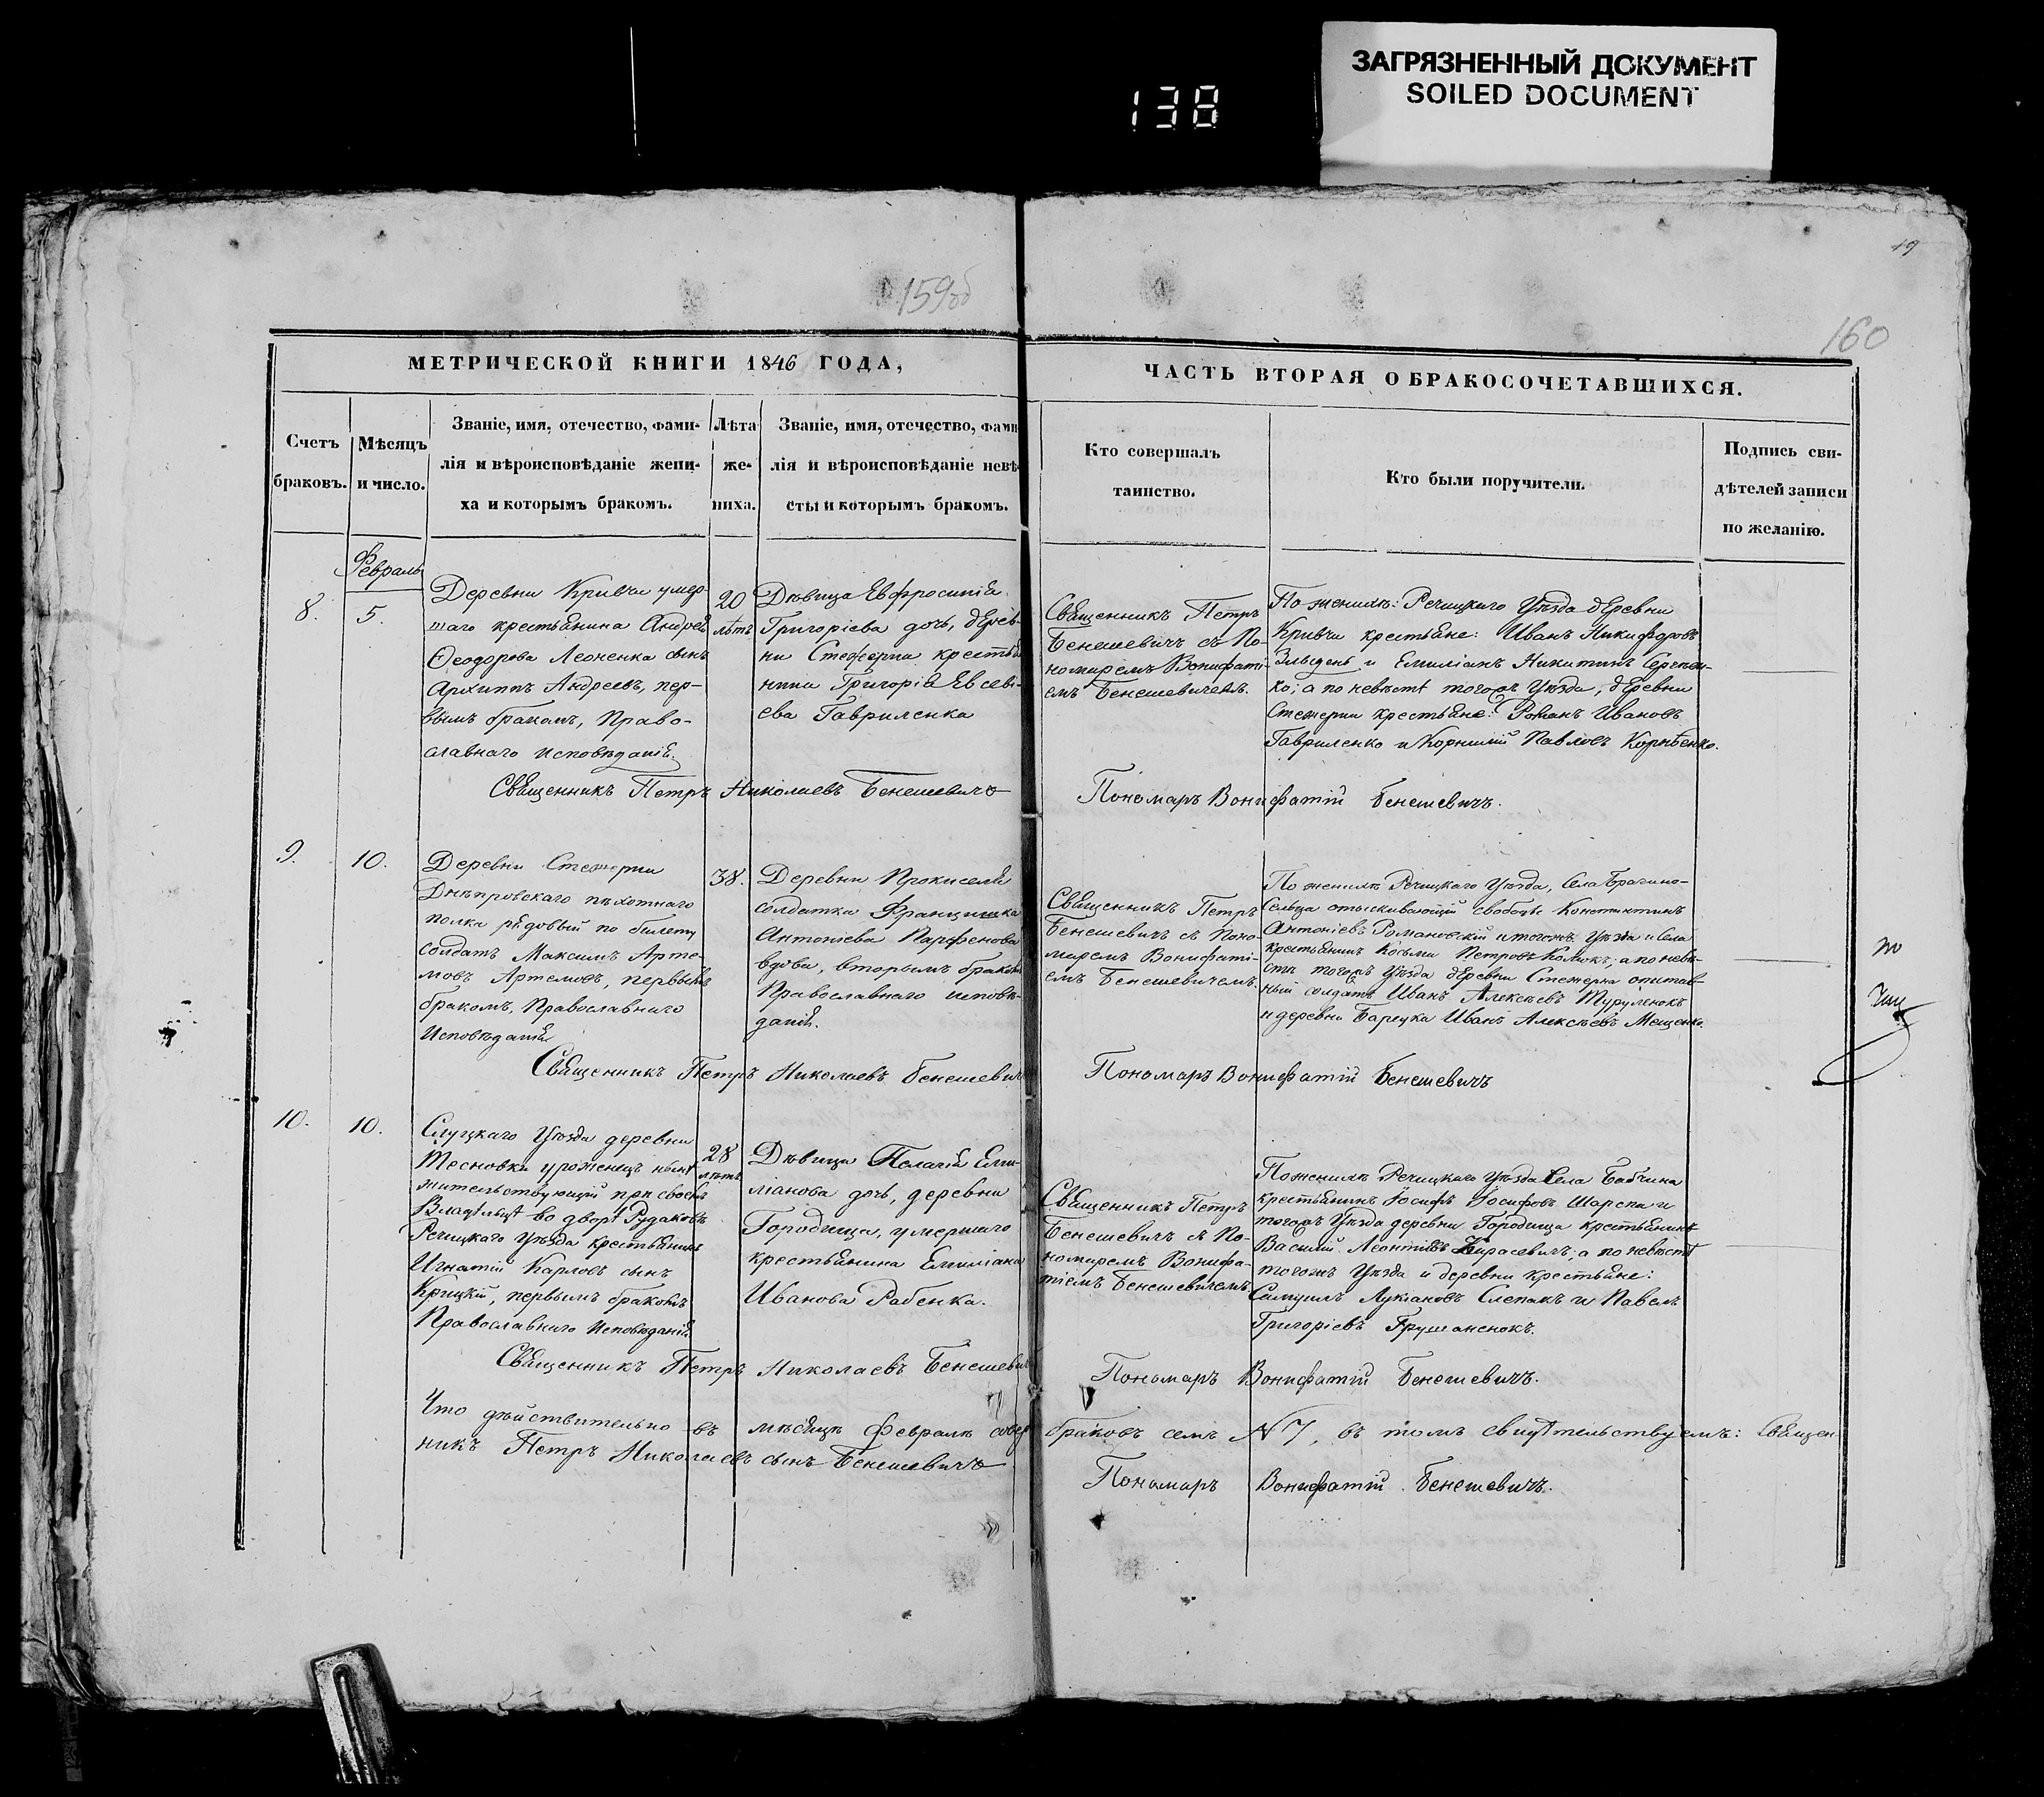 ЗАГРЯЗНЕННЫЙ ДОКУМЕНТ
SOILED DOCUMENT
138
19
159об
160
МЕТРИЧЕСКОЙ КНИГИ 1846 ГОДА,
ЧАСТЬ ВТОРАЯ О БРАКОСОЧЕТАВШИХСЯ.
Счетъ
браковъ.
Мѣсяцъ
и число.
Званіе, имя, отечество, фами-
лія и вѣроисповѣданіе жени-
ха и которымъ бракомъ.
Лѣта
же-
ниха.
Званіе, имя, отечество, фами
лія и вѣроисповѣданіе невѣ-
сты и которымъ бракомъ.
Кто совершалъ
таинство.
Кто были поручители.
Подпись сви-
дѣтелей записи
по желанію.
Февраль
8.
5.
Деревни Кривчи умер-
шаго крестьянина Андрея
Ѳеодорова Леоненка сынъ
Архиппъ Андреевъ, пер-
вымъ бракомъ, Право-
славнаго исповѣданія.
20
лѣтъ
Дѣвица Евфросинія
Григоріева дочь, дерев-
ни Стежерни крестья
нина Григорія Евсеві-
ева Гавриленка
Священникъ Петръ
Бенешевичъ съ По-
номаремъ Вонифаті-
емъ Бенешевичемъ.
По женихѣ: Речицкаго Уѣзда деревни
Кривчи крестьяне: Иванъ Никифоровъ
и Емиліанъ Никитинъ
ко; а по невѣстѣ тогожъ Уѣзда, деревни
Стежерни крестьяне: Романъ Ивановъ
Гавриленко и Корнилій Павловъ Корнѣенко.
Священникъ Петръ Николаевъ Бенешевичъ
Пономаръ Вонифатій Бенешевичъ.
9.
10.
Деревни Стежерни
Днѣпровскаго пѣхотнаго
полка рядовый по билету
солдатъ Максимъ Арте-
мовъ Артемовъ, первымъ
бракомъ, Православнаго
Исповѣданія
38.
Деревни Прокиселя
солдатка Францишка
Антоніева Парфенова
вдова, вторымъ бракомъ
Православнаго исповѣ-
данія.
Священникъ Петръ
Бенешевичъ съ Поно-
маремъ Вонифаті-
емъ Бенешевичемъ.
По женихѣ Речицкаго Уѣзда, Села Брагино-
Сельца отыскивающій свободы Константинъ
Антоніевъ Романовскій и тогожъ Уѣзда и Села
крестьянинъ Косьма Петровъ Комокъ; а по невѣ-
стѣ тогожъ Уѣзда деревни Стежерна отстав-
ный солдатъ Иванъ Алексѣевъ Туруленокъ
и деревни Барецка Иванъ Алексѣевъ Мещенко.
по
Священникъ Петръ Николаевъ Бенешевичъ
Пономаръ Вонифатій Бенешевичъ
10.
10.
Слуцкаго Уѣзда деревни
Тесновки уроженецъ нынѣ
жительствующій при своемъ
Владѣльцѣ во дворѣ Рудаковѣ
Речицкаго Уѣзда крестьянинъ
Игнатій Карловъ сынъ
Крицкій, первымъ бракомъ
Православнаго Исповѣданія
28
лѣтъ
Дѣвица Пелагія Еми-
ліанова дочь, деревни
Городища, умершаго
крестьянина Емиліана
Иванова Рабенка.
Священникъ Петръ
Бенешевичъ съ По-
номаремъ Вонифа-
тіемъ Бенешевичемъ.
По женихѣ Речицкаго Уѣзда Села Бабчина
крестьянинъ Іосифъ Іосифовъ Шарепа и
тогожъ Уѣзда деревни Городища крестьянинъ
Василій Леонтіевъ Карасевичъ; а по невѣстѣ
тогожъ Уѣзда и деревни крестьяне:
Самуилъ Лукіановъ Слепакъ и Павелъ
Григоріевъ Грушаненокъ.
Священникъ Петръ Николаевъ Бенешевичъ
Пономаръ Вонифатій Бенешевичъ.
Что дѣйствительно въ мѣсяцѣ Февралѣ совер браковъ семь № 7, въ томъ свидѣтельствуемъ: Священ
никъ Петръ Николаевъ сынъ Бенешевичъ
Пономаръ Вонифатій Бенешевичъ.